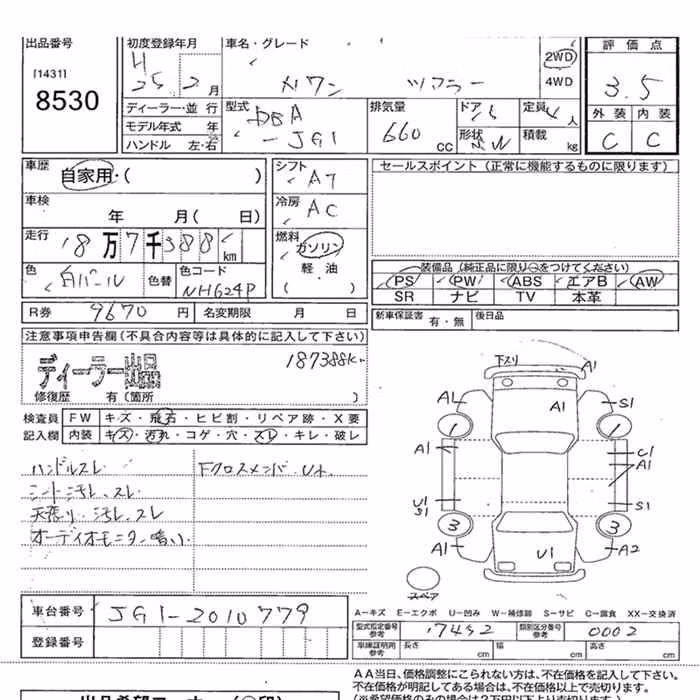 出品番号
[1431]
8530
初度登録年月
H
25年 2月
車名・グレード
Nワン ツアラー
2WD
4WD
評価点
3.5
外装 内装
C C
ディーラー・並行
モデル年式 年
ハンドル 左・右
型式
DBA
-JG1
排気量
660 cc
ドア 5
形状 SW
定員 4人
積載 kg
車歴
自家用・( )
車検
年 月( 日)
走行
18万7千388 km
色
白パール
色替
色コード
NH624P
シフト
AT
冷房
AC
燃料
ガソリン
軽・油
( )
セールスポイント (正常に機能するものに限ります)
装備品 (純正品に限り○をつけてください)
PS PW ABS エアB AW
SR ナビ TV 本革
R券 9670円 名変期限 月 日
新車保証書 有・無 後日品
注意事項申告欄(不具合内容等は具体的に記入して下さい)
ディーラー出品
187388K
修復歴 有(箇所 )
検査員
記入欄
FW キズ・飛石・ヒビ割・リペア跡・X要
内装 キズ・汚れ・コゲ・穴・スレ・キレ・破レ
ハンドルスレ
シート汚レ、スレ
天張り 汚レ、スレ
オーディオモニター暗い
Fクロスメンバ U大
下スリ
A1
A1
A1
S1
1
1
A1
U1
A1
U1
S1
S1
3
3
A1
U1
A2
スペア
A-キズ E-エクボ U-凹み W-補修跡 S-サビ C-腐食 XX-交換済
車台番号 JG1-2010779
登録番号
型式指定番号
参考
17452
類別区分番号
参考
0002
車庫証明用
参考
長さ cm
幅 cm
高さ cm
AA当日、価格調整にこられない方は、不在価格を記入して下さい。
不在価格が明記してある場合は、不在価格以上で売切ります。